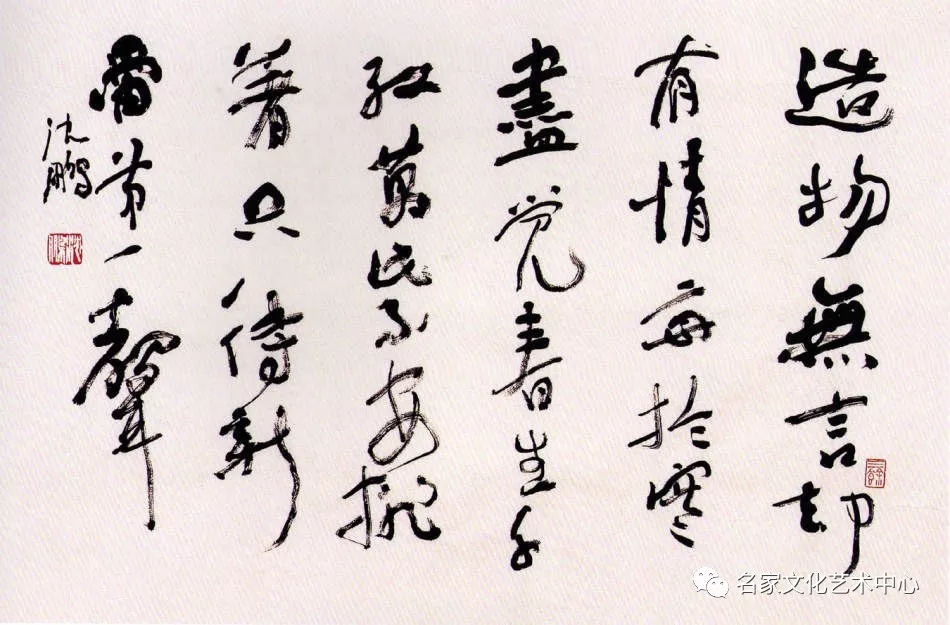 造物無言却
有情每於寒
盡觉春生千
红萬紫安排
著只待新
雷第一聲
沈鹏
名家文化艺术中心